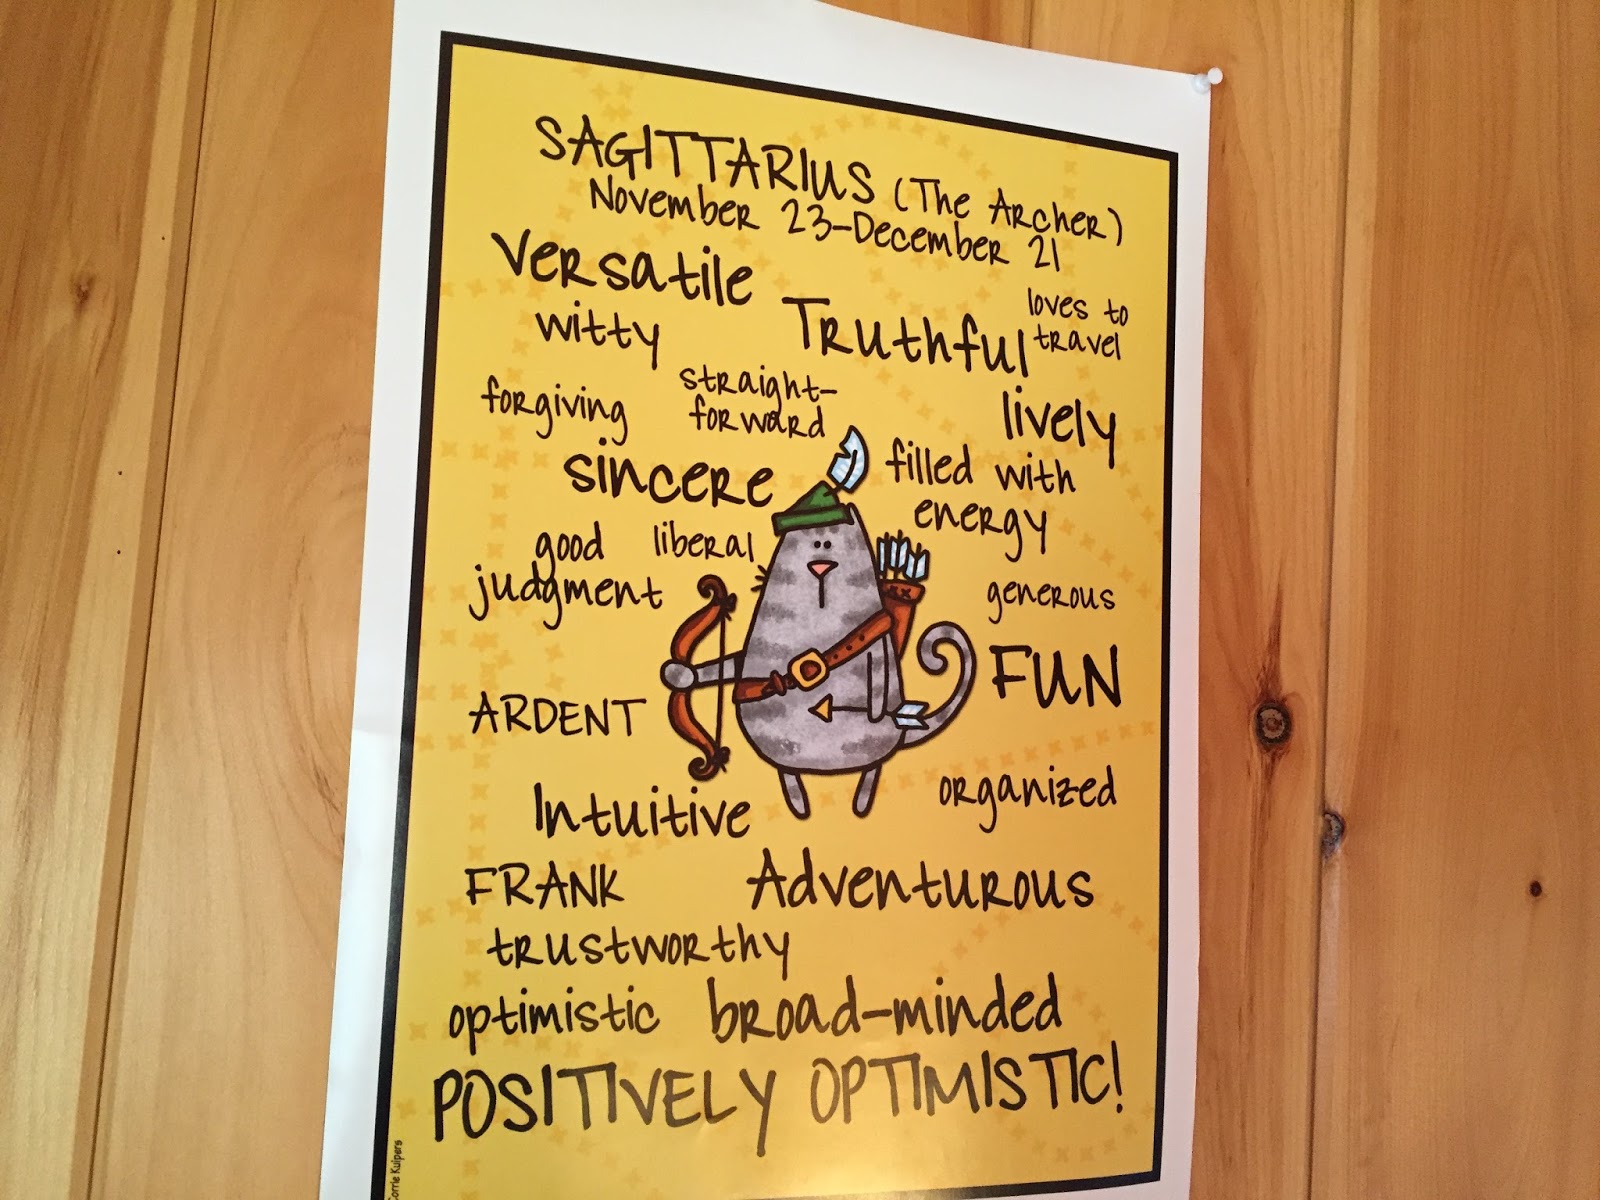 SAGITTARIUS (The Archer)
November 23-December 21
Versatile
witty
Truthful
loves to
travel
forgiving
straight-
forward
lively
sincere
filled with
energy
good
judgment
liberal
generous
FUN
ARDENT
Intuitive
organized
FRANK
Adventurous
trustworthy
optimistic
broad-minded
POSITIVELY OPTIMISTIC!
Kuipers